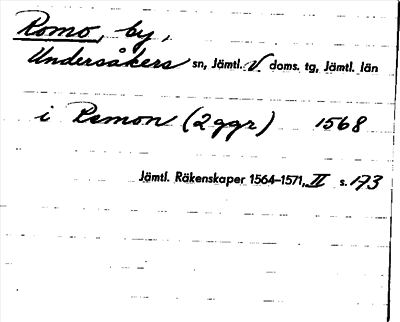 Romo, by,
Undersåkers sn, Jämtl. V. doms. tg, Jämtl. län
i Remon (2 ggr) 1568
Jämtl. Räkenskaper 1564–1571, II s. 173